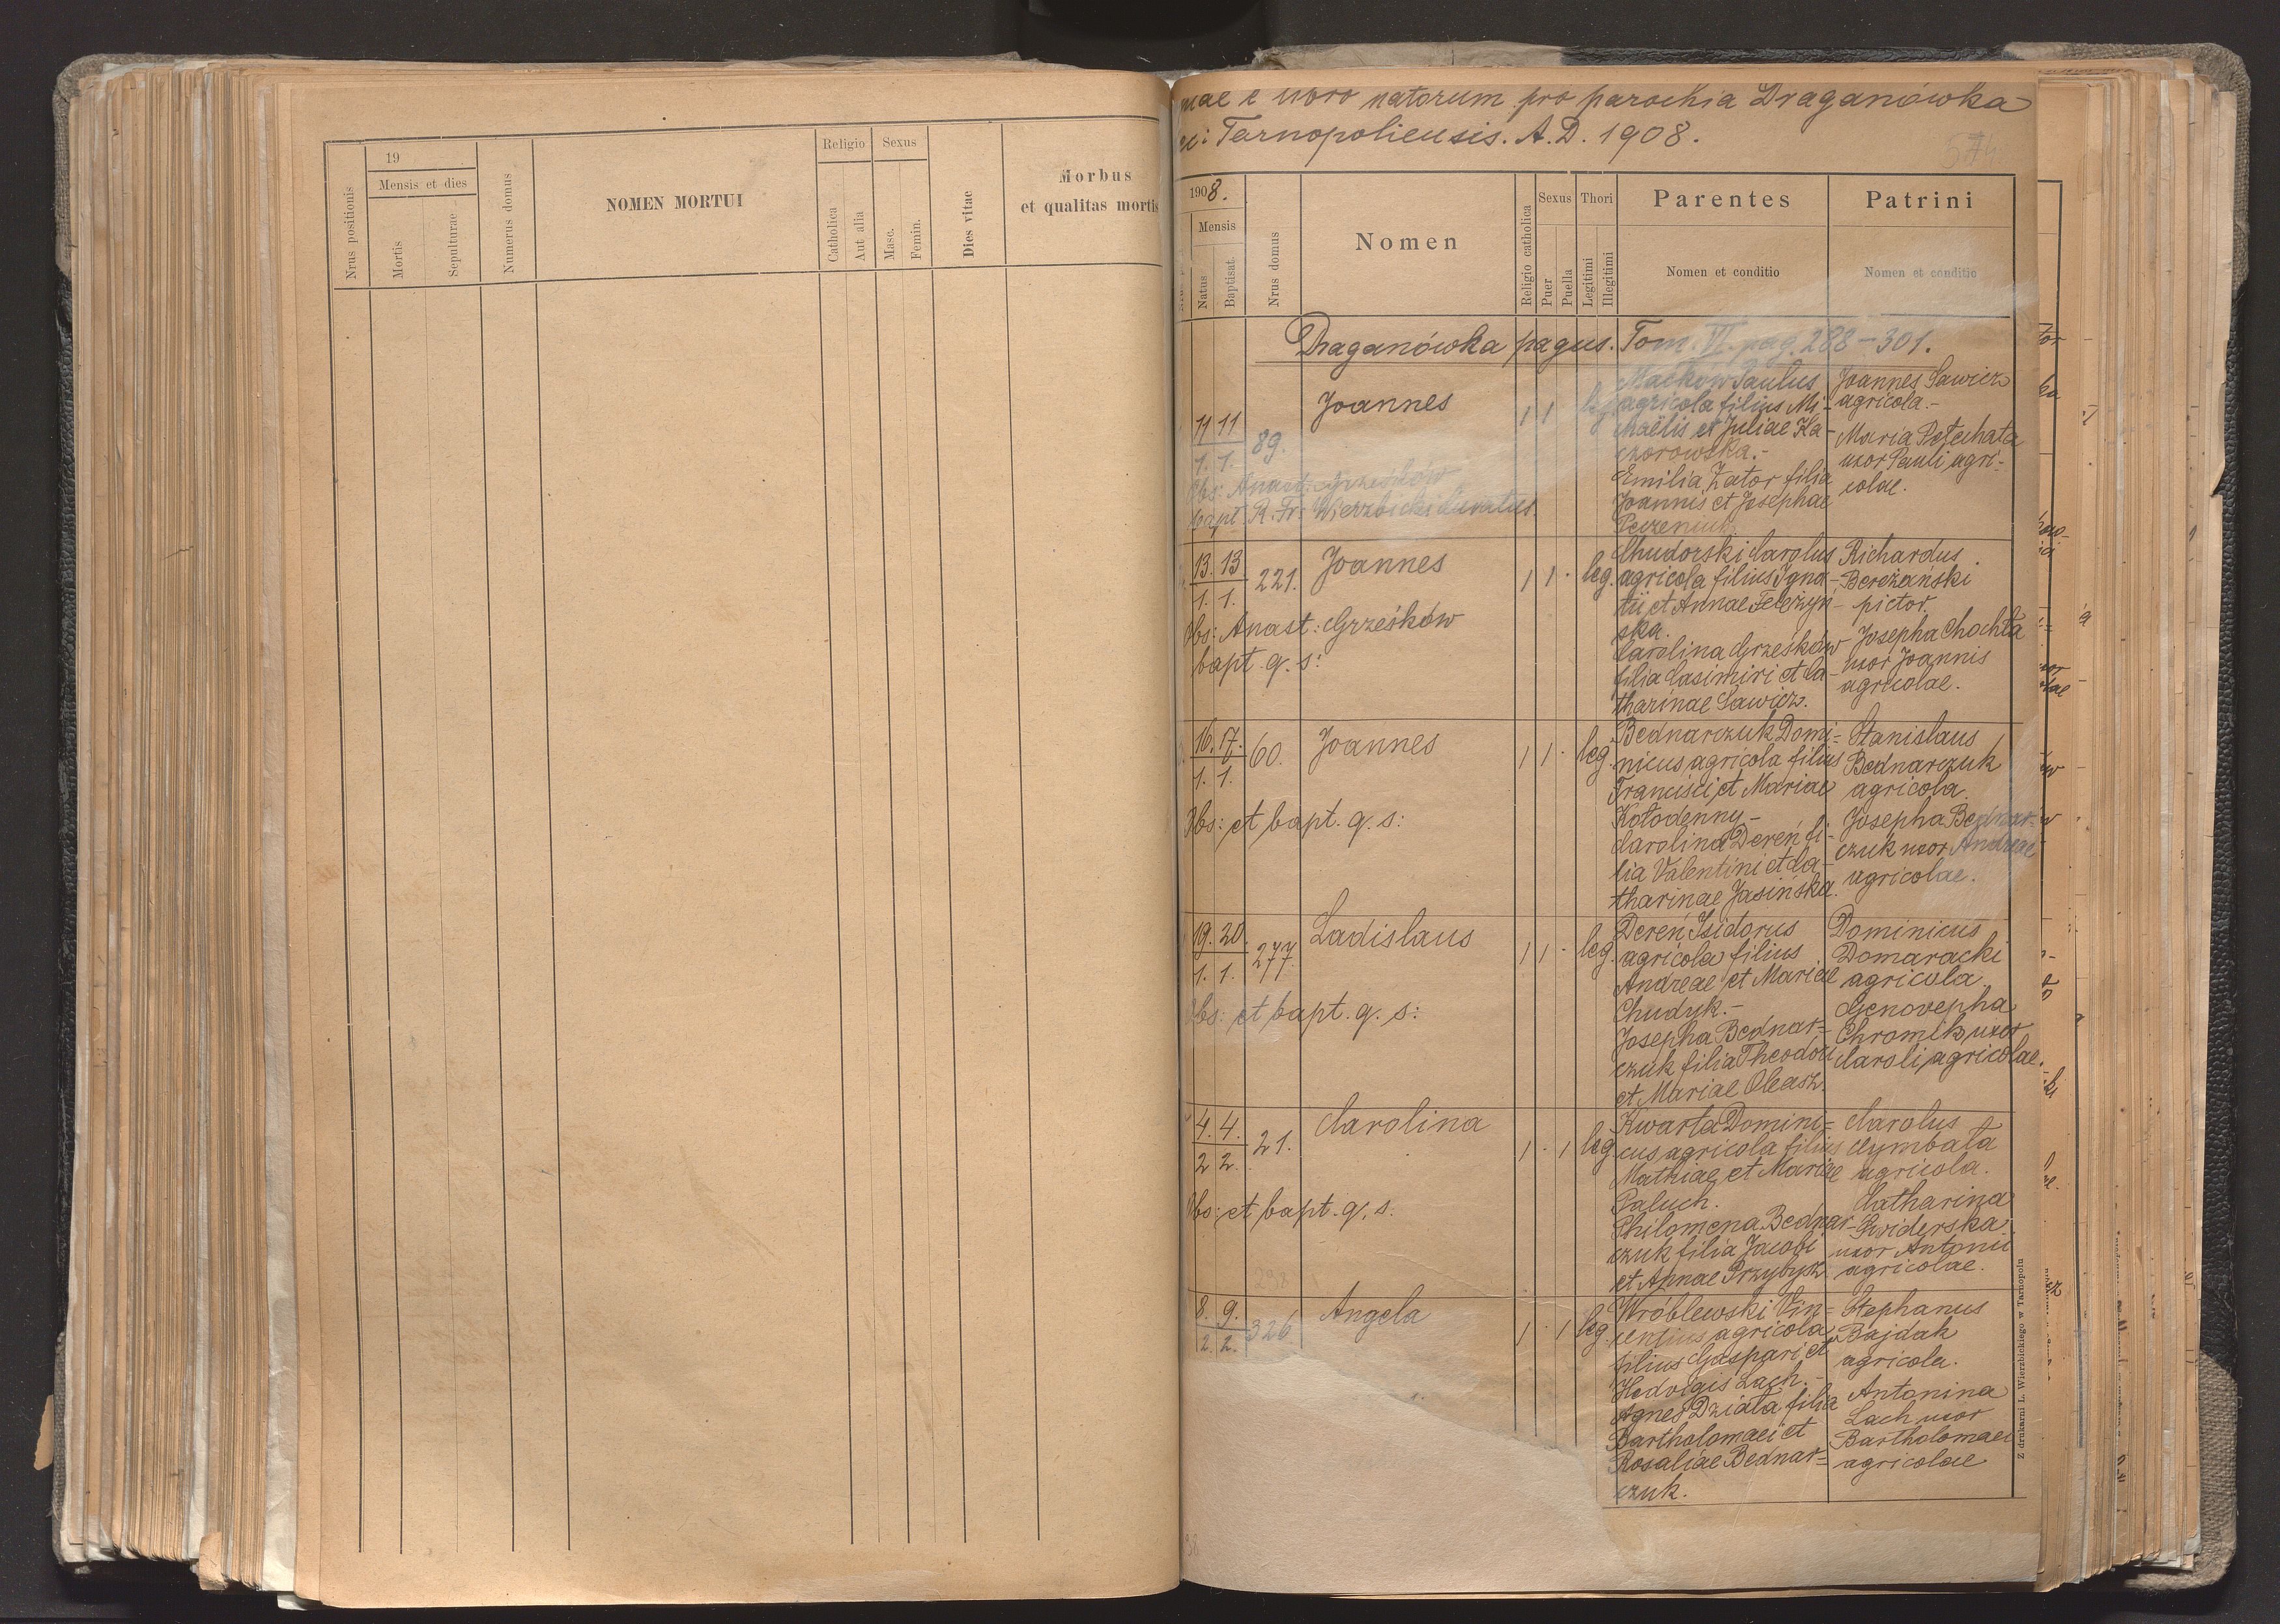 19
Mensis et dies
Nrus positionis
Mortis
Sepulturae
Numerus domus
NOMEN MORTUI
Religio
Catholica
Aut alia
Sexus
Masc.
Femin.
Dies vitae
Morbus
et qualitas mortis
libro natorum pro parochia Draganówka
Tarnopoliensis. A. D. 1908.
1908.
Mensis
Natus
Baptisat.
Nrus domus
Nomen
Religio catholica
Sexus
Puer
Puella
Thori
Legitimi
Illegitimi
Parentes
Nomen et conditio
Patrini
Nomen et conditio
Draganówka pagus. Tom. VI. pag. 288-301.
11 11
1. 1.
89.
Joannes
1 1 leg.
Obs: Anast: Grześków
bapt. R. Fr. Wierzbicki Curatus.
Maćków Paulus
agricola filius Mi-
chaëlis et Juliae Ka-
czorowska.-
Emilia Zator filia
Joannis et Josephae
Joannes Sawicz
agricola.-
Maria Petechata
uxor Pauli agri-
colae.
13. 13
1. 1.
221.
Joannes
1 1 . leg.
Obs: Anast: Grześków
bapt. q. s:
Chudorski Carolus
agricola filius Igna-
tii et Annae Teleżyń-
ska.
Carolina Grześków
filia Casimiri et Ca-
tharinae Sawicz.
Richardus
Bereżański
pictor.
Josepha Chochła
uxor Joannis
agricolae.
16. 17.
1. 1.
60.
Joannes
1 1 . leg.
Obs: et bapt. q. s:
Bednarczuk Domi-
nicus agricola filius
Francisci et Mariae
Kołodenny-
Carolina Dereń fi-
lia Valentini et Ca-
tharinae Jasińska.
Stanislaus
Bednarczuk
agricola.
Josepha Bednar-
czuk uxor Andreae
agricolae.
19. 20.
1. 1.
277.
Ladislaus
1 1 . leg.
Obs: et bapt. q. s:
Dereń Isidorus
agricola filius
Andreae et Mariae
Chudyk.-
Josepha Bednar=
czuk filia Theodori
et Mariae Oleasz.
Dominicus
Domaracki
agricola.
Genovepha
Chromik uxor
Caroli agricolae.
4. 4.
2 2.
21.
Carolina
1 . 1 leg.
Obs: et bapt. q. s.
Kwarta Domini=
cus agricola filius
Mathiae et Mariae
Paluch.
Philomena Bednar-
czuk filia Jacobi
et Annae Przybysz.
Carolus
Cymbała
agricola.
Catharina
Swiderska
uxor Antonii
agricolae.
8. 9.
2. 2.
326
Angela
1 . 1 leg.
Wróblewski Vin=
centius agricola
filius Gaspari et
Hedvigis Lach.-
Agnes Działa filia
Bartholomaei et
Rosaliae Bednar=
czuk.
Stephanus
Bajdak
agricola.
Antonina
Lach uxor
Bartholomaei
agricolae
Z drukarni L. Wierzbickiego w Tarnopolu